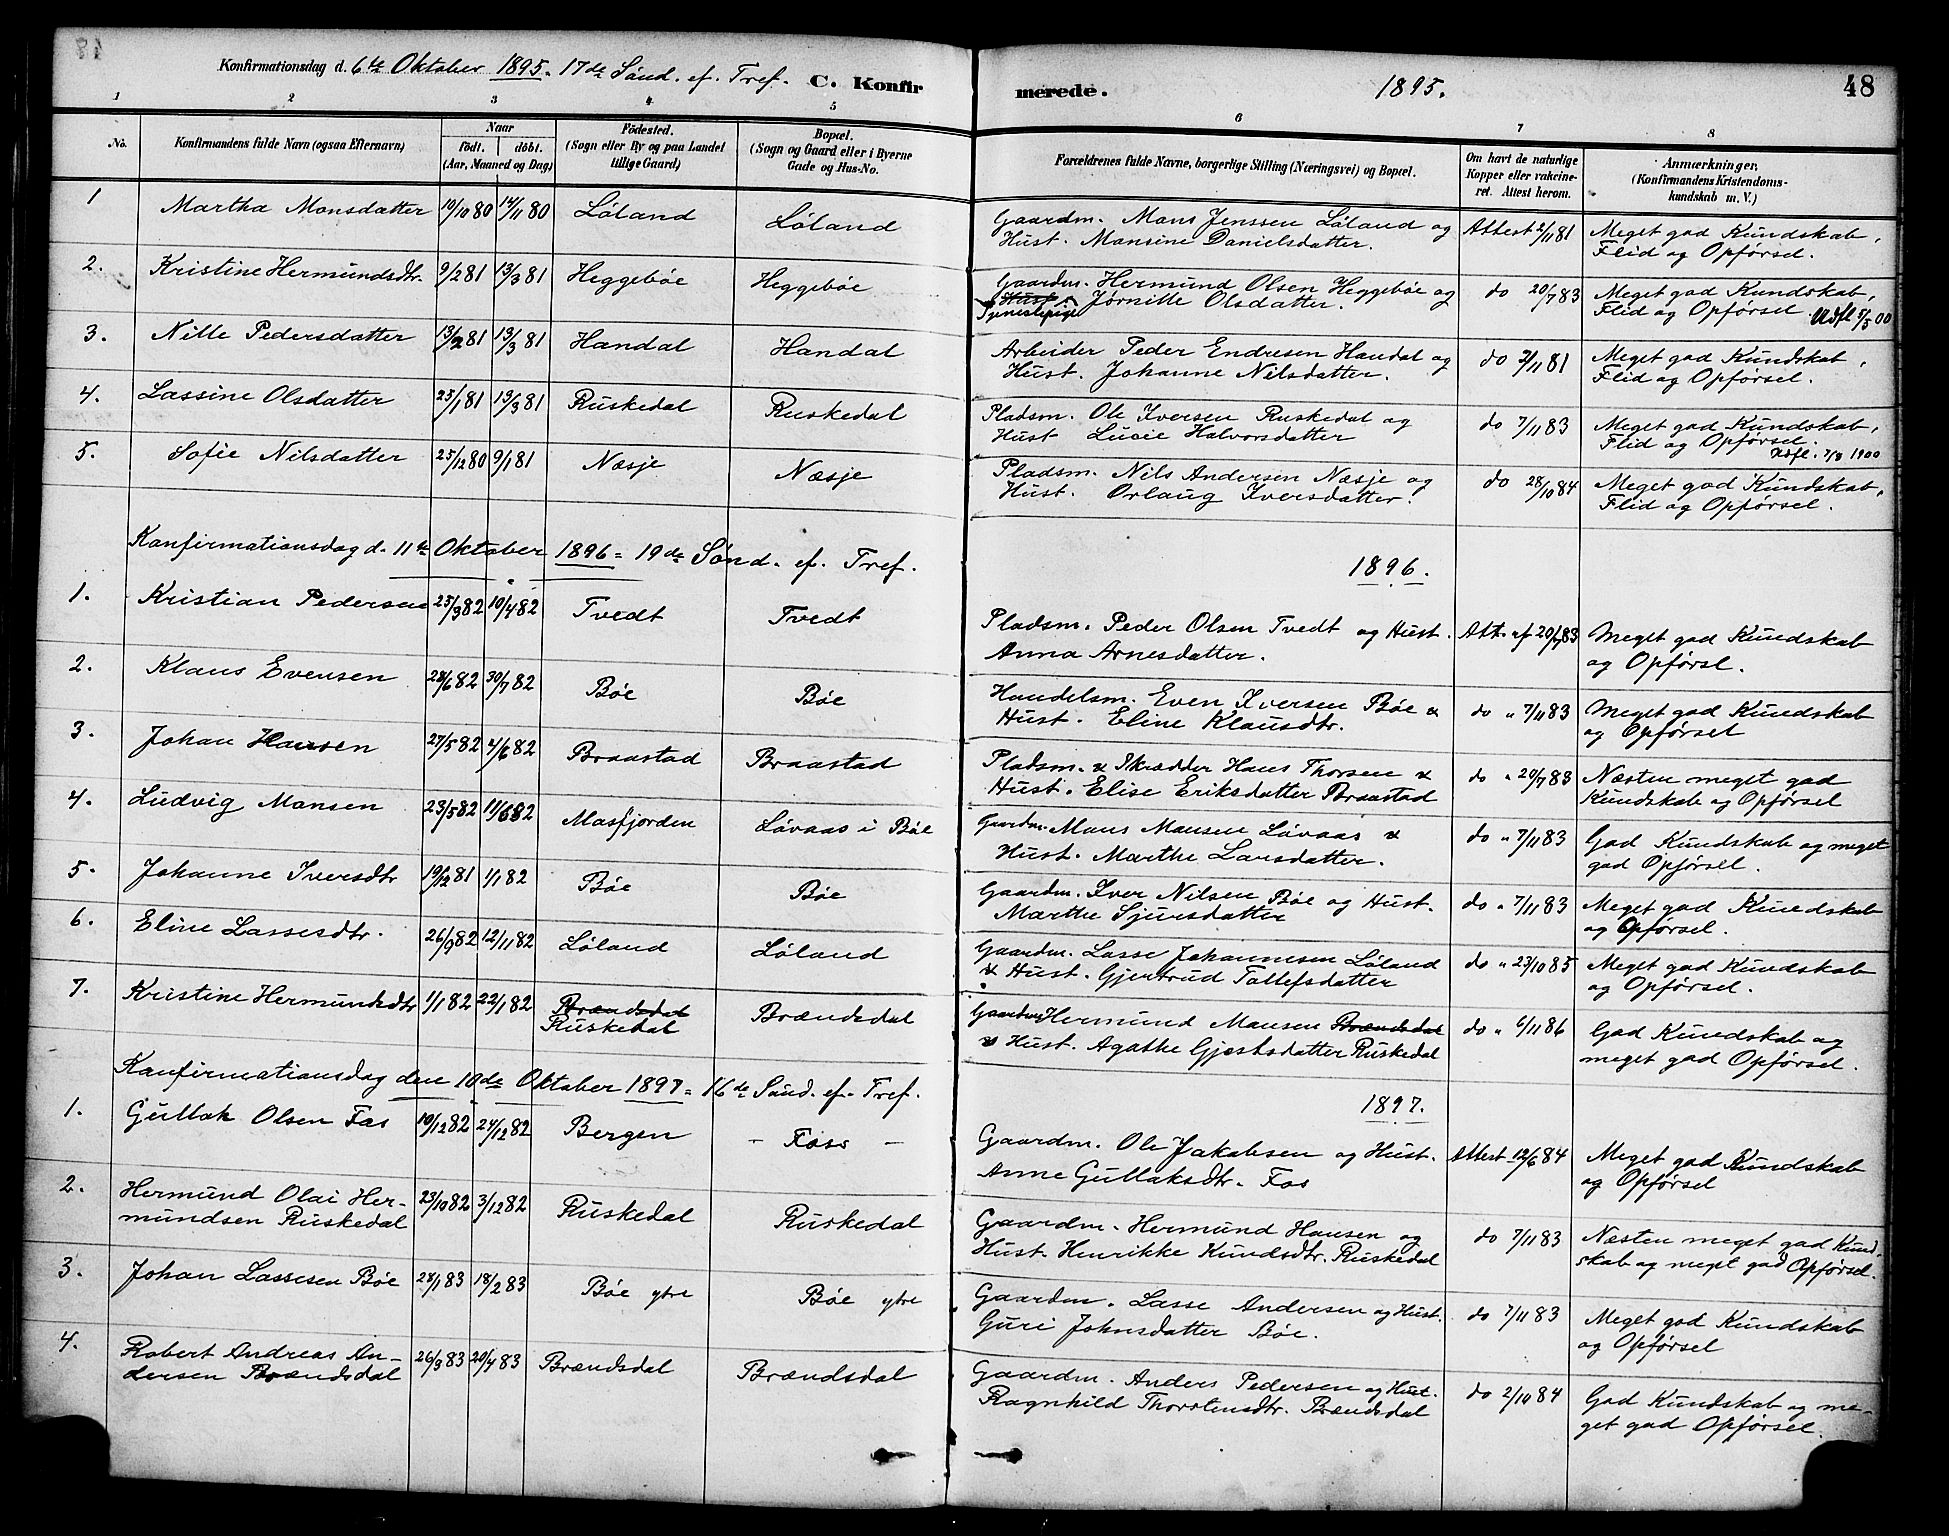 Konfirmationsdag d. 6te Oktober 1895. 17de Sønd. ef. Tref. C. Konfir
merede. 1895. 48
1 2 3 4 5 6 7 8
No. Konfirmandens fulde Navn (ogsaa Efternavn) Naar født. døbt. (Aar, Maaned og Dag) Fødested. (Sogn eller By og paa Landet tillige Gaard) Bopæl. (Sogn og Gaard eller i Byerne Gade og Hus-No.
Forældrenes fulde Navne, borgerlige Stilling (Næringsvei) og Bopæl. Om havt de naturlige Kopper eller vakcineret. Attest herom. Anmærkninger, (Konfirmandens Kristendomskundskab m. V.)
1 Martha Monsdatter 19/10 80 14/11 80 Løland Løland Gaardm. Mons Jenssen Løland og Attest 2/11 81 Meget god Kundskab,
Hust. Monsine Danielsdatter. Flid og Opførsel.
2. Kristine Hermundsdtr. 9/2 81 13/3 81 Heggebøe Heggebøe Gaardm. Hermund Olsen Heggebøe og do 20/7 83 Meget god Kundskab,
Hust. Tjenestepige Jørnitte Olsdatter. Flid og Opførsel. Udfl. 5/5 00
3. Nille Pedersdatter 13/2 81 13/3 81 Handal Handal Arbeider Peder Endresen Handal og do 2/11 81 Meget god Kundskab,
Hust. Johanne Nilsdatter. Flid og Opførsel.
4. Lassine Olsdatter 23/1 81 13/3 81 Ruskedal Ruskedal Pladsm. Ole Iversen Ruskedal og do 7/11 83 Meget god Kundskab,
Hust Lucie Halvorsdatter Flid og Opførsel. Udfl. 7/8 1900
5. Sofie Nilsdatter 25/12 80 9/1 81 Næsje Næsje Pladsm. Nils Andersen Næsje og do 28/10 84 Meget god Kundskab,
Hust. Orlaug Iversdatter. Flid og Opførsel.
Konfirmationsdag d. 11te Oktober 1896 = 19de Sønd. ef. Tref. 1896.
1. Kristian Pedersen 25/3 82 10/4 82 Tvedt Tvedt Pladsm. Peder Olsen Tvedt og Hust. Att. af 20/7 83 Meget god Kundskab
Anna Arnesdatter. og Opførsl.
2. Klaus Evensen 28/6 82 30/7 82 Bøe Bøe Handelsm. Even Iversen Bøe & do " 7/11 83 Meget god Kundskab
Hust. Eline Klausdtr. og Opførsel
3. Johan Hansen 27/5 82 4/6 82 Braastad Braastad Pladsm. & Skrædder Hans Thorsen & do " 20/7 83 Næsten meget god
Hust. Elise Eriksdatter Braastad Kundskab og Opførsel
4. Ludvig Monsen 23/5 82 11/6 82 Masfjorden Løvaas i Bøe Gaardm. Mons Monsen Løvaas & do " 7/11 83 God Kundskab og meget
Hust. Marthe Larsdatter. god Opførsel.
5. Johanne Iversdtr 19/12 81 1/1 82 Bøe Bøe Gaardm. Iver Nilsen Bøe og Hust. do " 7/11 83 Meget god Kundskab
Marthe Sjursdatter og Opførsel.
6. Eline Lassesdtr. 26/9 82 12/11 82 Løland Løland Gaardm. Lasse Johannesen Løland do " 23/10 85 Meget god Kundskab
& Hust. Gjertrud Tollefsdatter og Opførsel.
7. Kristine Hermundsdtr 1/1 82 22/1 82 Brændsdal Ruskedal Brændsdal Gaardm Hermund Monsen Brændsdal do " 6/11 86 God Kundskab og
& Hust. Agathe Gjestsdatter Ruskedal meget god Opførsel.
Konfirmationsdag den 10de Oktober 1897 = 16de Sønd. ef. Tref. 1897.
1. Gullak Olsen Fos 19/12 82 24/12 82 Bergen - Foss - Gaardm. Ole Jakobsen og Hust. Attest 12/6 84 Meget god Kundskab
Anne Gullaksdtr. Fos og Opførsel
2. Hermund Olai Her- 23/10 82 3/12 82 Ruskedal Ruskedal Gaardm. Hermund Hansen og do 7/11 83 Næsten meget god Kund-
mundsen Ruskedal Hust. Henrikke Knudsdtr. Ruskedal skab og meget god Opførsel.
3. Johan Lassesen Bøe 28/1 83 18/2 83 Bøe ytre Bøe ytre Gaardm. Lasse Andersen og Hust. do 7/11 83 Meget god Kundskab
Guri Johnsdatter Bøe. og Opførsel
4. Robert Andreas An- 26/3 83 20/4 83 Brændsdal Brændsdal Gaardm. Anders Pedersen og Hust. do 2/10 84 God Kundskab og me-
dersen Brændsdal Ragnhild Thorstensdtr. Brændsdal get god Opførsel.